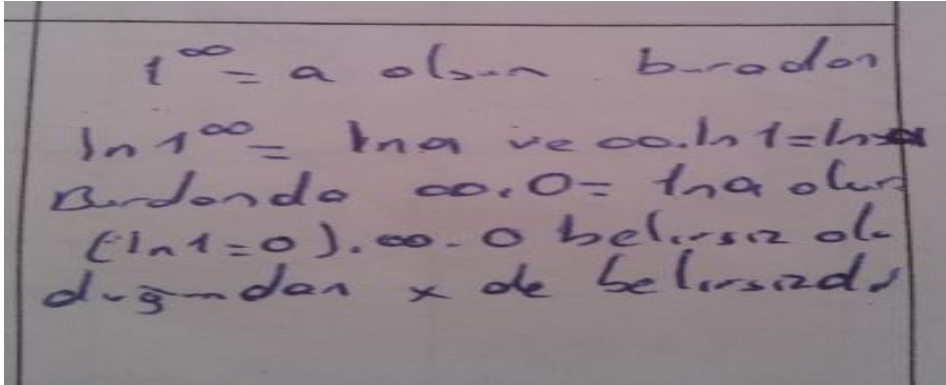 1^∞ = a olsun. buradan
ln 1^∞ = lna ve ∞.ln 1 = ln
Burdanda ∞.0 = lna olur
(ln1=0). ∞.0 belirsiz ol
duğundan x de belirsizdi